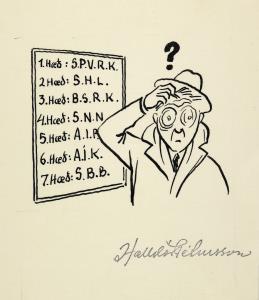 ?
1. Hæð: S.P.V.R.K.
2 Hæð: S.H.L.
3. Hæð: B.S.R.K.
4. Hæð: S.N.N
5. Hæð: A.I.P.
6. Hæð: A.J.K.
7. Hæð: S.B.B.
Halldór Pétursson